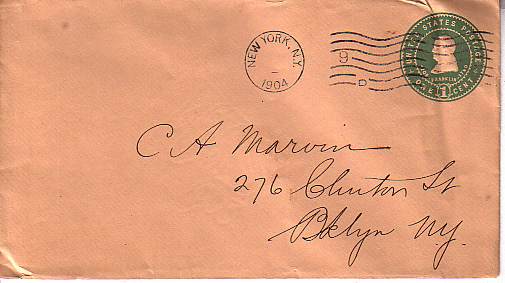 NEW YORK, N.Y.
1904
9
D
UNITED STATES POSTAGE
FRANKLIN
ONE 1 CENT
C A Marvin
276 Clinton St
Bklyn NY.